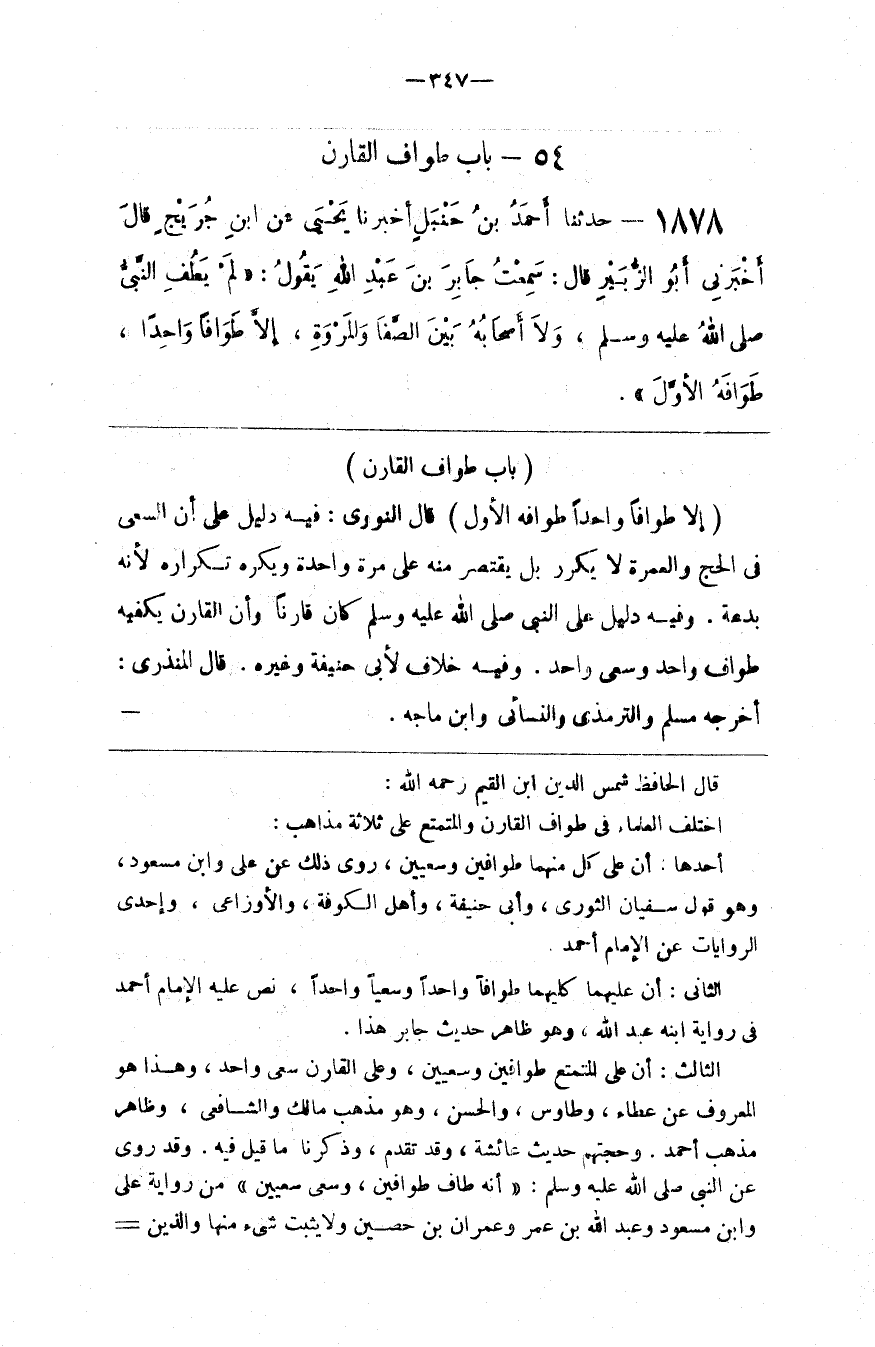 —٣٤٧—
٥٤ – باب طواف القارن
١٨٧٨ – حدثنا أَحمَدُ بنُ حَنْبَلٍ أخبرنا يَحْيَى عن ابنِ جُرَيْجٍ قالَ
أَخْبَرَنِي أَبُو الزُّبَيْرِ قال : سَمِعْتُ جابِرَ بنَ عَبْدِ اللهِ يَقُولُ : « لَمْ يَطُفِ النَّبيُّ
صلى اللهُ عليه وسلم ، وَلاَ أَصحَابُهُ بَيْنَ الصَّفَا وَالمَرْوَةِ ، إلاَّ طَوَافًا وَاحِدًا ،
طَوَافَهُ الأوَّلَ » .
( باب طواف القارن )
( إلا طوافاً واحداً طوافه الأول ) قال النووى : فيه دليل على أن السعى
فى الحج والعمرة لا يكرر بل يقتصر منه على مرة واحدة ويكره تكراره لأنه
بدعة . وفيه دليل على النبى صلى الله عليه وسلم كان قارناً وأن القارن يكفيه
طواف واحد وسعى واحد . وفيه خلاف لأبى حنيفة وغيره . قال المنذرى :
أخرجه مسلم والترمذى والنسائى وابن ماجه . —
قال الحافظ شمس الدين ابن القيم رحمه الله :
اختلف العلماء فى طواف القارن والمتمتع على ثلاثة مذاهب :
أحدها : أن على كل منهما طوافين وسعيين ، روى ذلك عن على وابن مسعود ،
وهو قول سفيان الثورى ، وأبى حنيفة ، وأهل الكوفة ، والأوزاعى ، وإحدى
الروايات عن الإمام أحمد .
الثانى : أن عليهما كليهما طوافاً واحداً وسعياً واحداً ، نص عليه الإمام أحمد
فى رواية ابنه عبد الله ، وهو ظاهر حديث جابر هذا .
الثالث : أن على المتمتع طوافين وسعيين ، وعلى القارن سعى واحد ، وهذا هو
المعروف عن عطاء ، وطاوس ، والحسن ، وهو مذهب مالك والشافعى ، وظاهر
مذهب أحمد . وحجتهم حديث عائشة ، وقد تقدم ، وذكرنا ما قيل فيه . وقد روى
عن النبى صلى الله عليه وسلم : « أنه طاف طوافين ، وسعى سعيين » من رواية على
وابن مسعود وعبد الله بن عمر وعمران بن حصين ولايثبت شىء منها والذين =